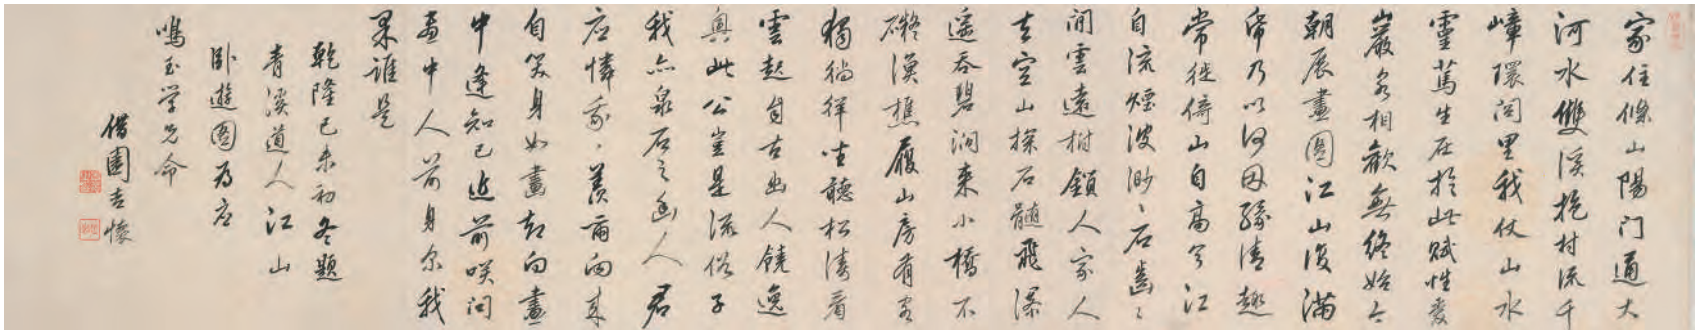 家住條山陽門通大
河水雙溪抱村流千
嶂環閭里我仗山水
靈篤生在於此賦性愛
巖泉相歡無終始今
朝展畫圖江山復滿
帋乃以何因緣清趣
常徙倚山自高兮江
自流煙波渺々石齒々
間雲遠樹鎖人家人
去空山探石髓飛瀑
遥吞碧澗來小橋不
礙漁樵履山房有客
獨徜徉坐聽松濤看
雲起自古幽人饒逸
興此公豈是流俗子
我亦泉石之幽人君
應憐我我羨爾向來
自笑身如畫却向畫
中逢知己近前咲問
畫中人前身尔我
果誰是
乾隆己未初冬題
青溪道人江山
卧遊圖為應
鳴玉学兄命
借園 懷